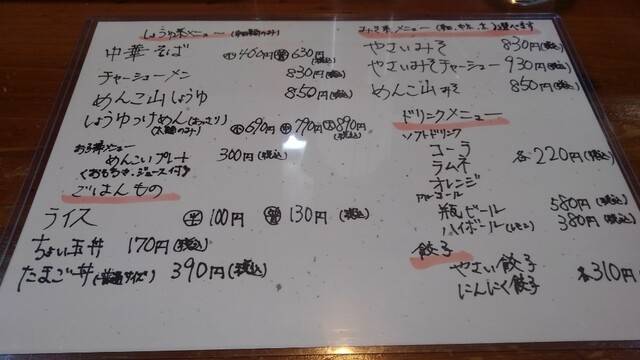 しょうゆ系メニュー(中細麺のみ)
中華そば 小460円 普630円(税込)
チャーシューメン 830円(税込)
めんこ山しょうゆ 850円(税込)
しょうゆつけめん(あっさり) 小690円 中790円 大890円(税込)
(太麺のみ)
お子様メニュー
めんこいプレート 300円(税込)
(おもちゃ、ジュース付)
ごはんもの
ライス 半100円 普130円(税込)
ちょい玉丼 170円(税込)
たまご丼(普通サイズ) 390円(税込)
みそ系メニュー
やさいみそ 830円(税込)
やさいみそチャーシュー 930円(税込)
めんこ山みそ 850円(税込)
ドリンクメニュー
ソフトドリンク
コーラ
ラムネ 各220円(税込)
オレンジ
アルコール
瓶ビール 580円(税込)
ハイボール(レモン) 380円(税込)
餃子
やさい餃子
にんにく餃子 各310円